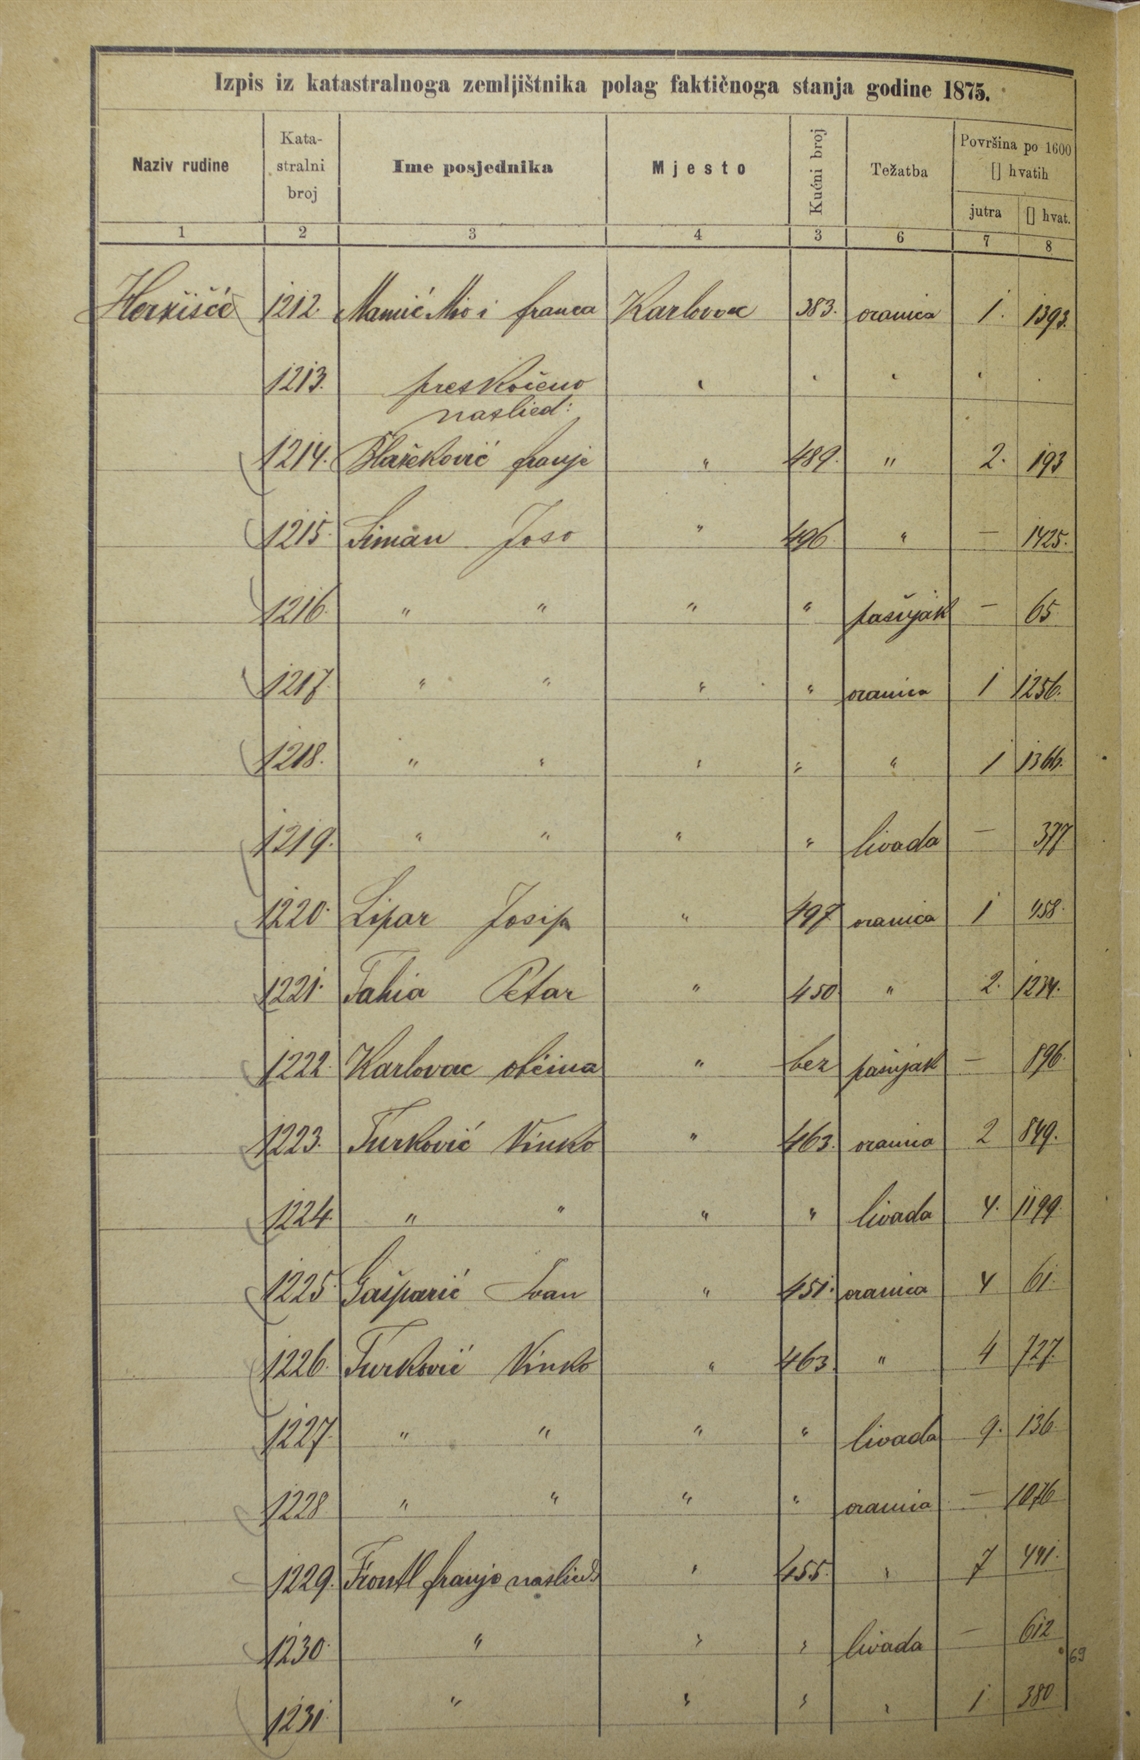 Izpis iz katastralnoga zemljištnika polag faktičnoga stanja godine 1875.
Naziv rudine Katastralni broj Ime posjednika Mjesto Kućni broj Težatba Površina po 1600 [] hvatih
jutra [] hvat.
1 2 3 4 3 6 7 8
1212. Mamić Mio i franca Karlovac 383. oranica 1. 1393.
1213. preskočeno " " " " "
naslied:
1214. Blašeković franje " 489. " 2. 193
1215. Siman Joso " 496 " — 1425.
1216. " " " " pašnjak — 65
1217. " " " " oranica 1 1256.
1218. " " " " " 1 1366.
1219. " " " " livada — 377
1220. Lipar Josip " 497 oranica 1 458.
1221. Petar " 450 " 2. 1234.
1222. Karlovac občina " bez pašnjak — 896.
1223. Turković Vinko " 463. oranica 2 849.
1224 " " " " livada 4. 1199
1225. Gašparić Ivan " 451. oranica 4 61.
1226. Turković Vinko " 463. " 4 727.
1227 " " " " livada 9. 136.
1228 " " " " oranica — 1076
1229. franjo naslied. " 455. " 7 441.
1230. " " " livada — 612
69
1231. " " " " 1 380